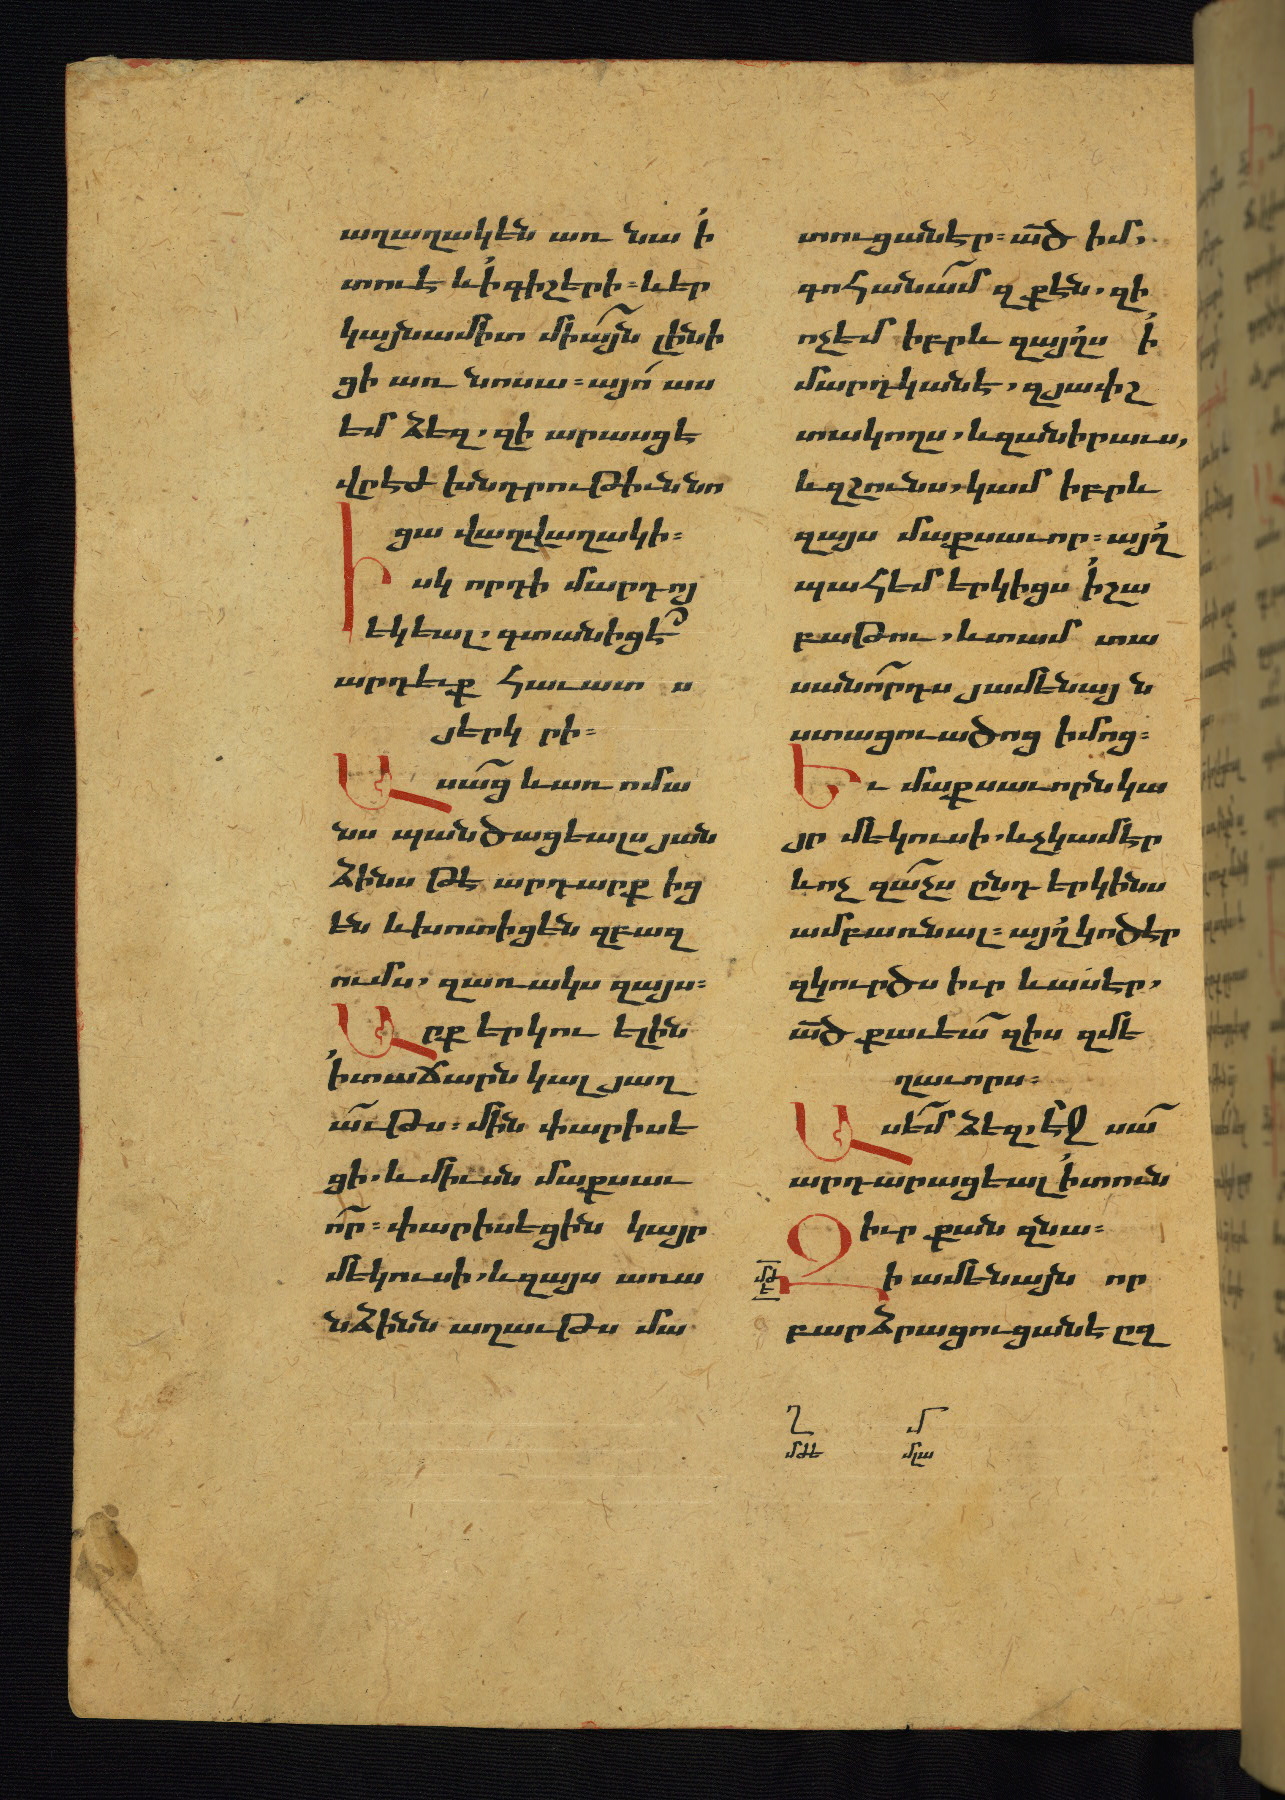 աղաղակէն առ նա ՛ի
տուէ և՛ի գիշերի։ և եր
կայնամիտ միայն լինի
ցի առ նոսա։ այո աս
եմ ձեզ, զի արասցէ
վրէժ խնդրութիւն նո
ցա վաղվաղակի։
Իսկ որդի մարդոյ
եկեալ, գտանիցէ՞
արդեւք հաւատս
յերկրի։
Ասաց և առ ոմա
նս պանծացեալս յան
ձինս թէ արդարք ից
են և խոտիցեն զբազ
ումս, զառակս զայս։
Արք երկու ելին
՛ի տաճարն կալ յաղ
աւթս։ մին փարիսե
ցի, և միւսն մաքսաւ
որ։ փարիսեցին կայր
մեկուսի, և զայս առա
նձինն աղաւթս մա
տուցաներ։ ած իմ,
գոհանամ զքէն, զի
ոչեմ իբրև զայլս ՛ի
մարդկանէ, զյափշ
տակողս, և զանիրաւս,
և զշունս, կամ իբրև
զայս մաքսաւոր։ այլ
պահեմ երկիցս ՛ի շա
բաթու, և տամ տա
սանորդս յամենայն
ստացուածոց իմոց։
Եւ մաքսաւորն կա
յր մեկուսի, և չկամէր
և ոչ զաչս ընդ երկինս
ամբառնալ։ այլ կոծէր
զկուրծս իւր և ասէր,
ած քաւեա զիս զմե
ղաւորս։
Ասեմ ձեզ, էջ սա
արդարացեալ ՛ի տուն
իւր քան զնա։
Զի ամենայն որ
մթ
է
բարձրացուցանէ ըզ
Ղ մ
մքե մլա